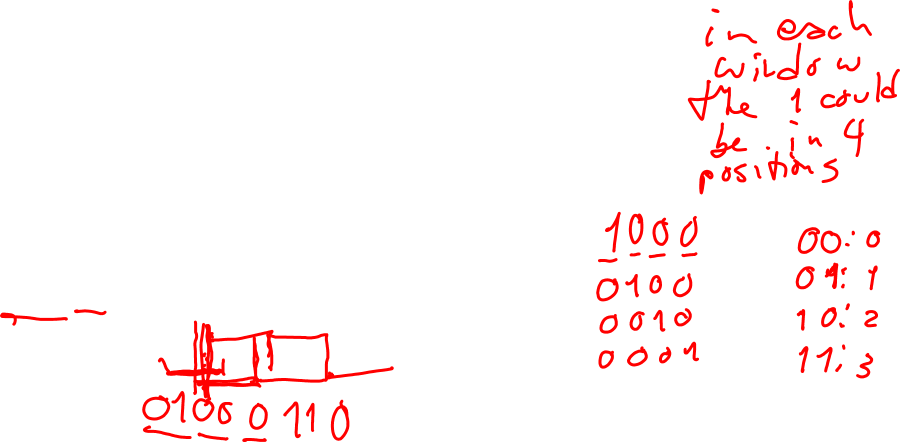 in each
window
the 1 could
be in 4
positions
1000 00: 0
0100 01: 1
0010 10: 2
0001 11: 3
01000110